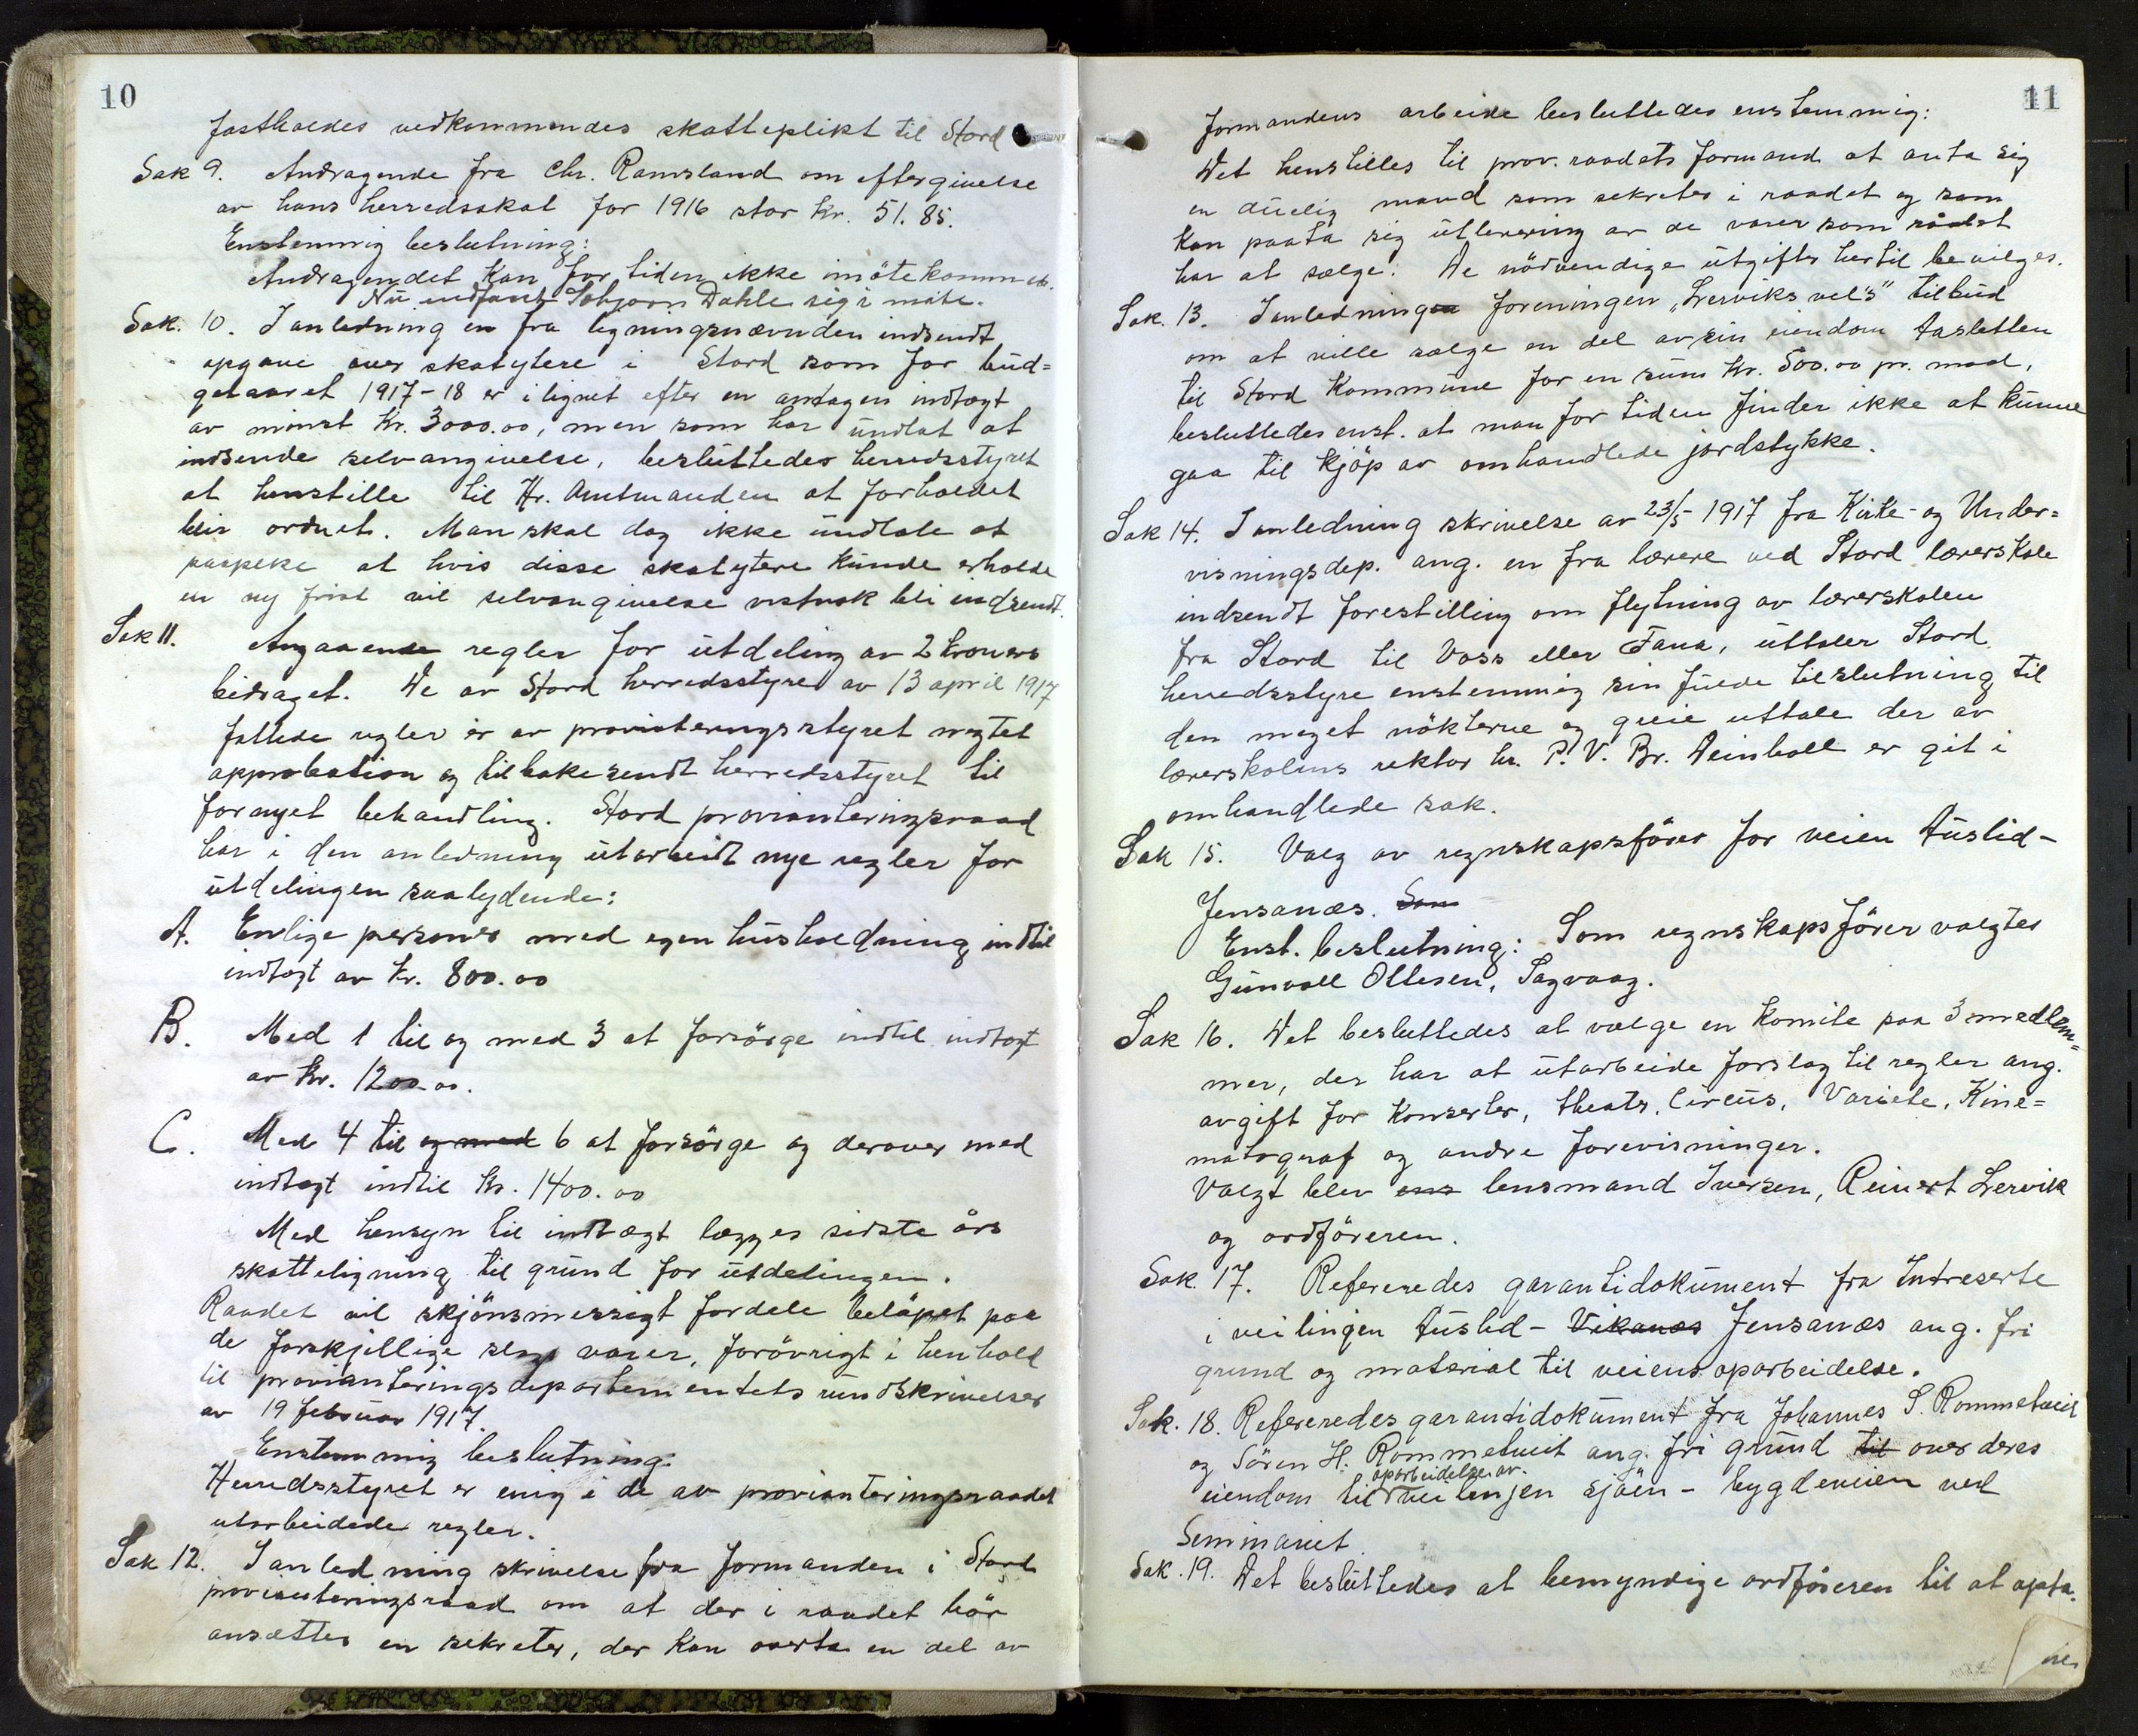 10
fastholdes vedkommendes skatteplikt til Stord
Sak 9. Andragende fra Chr. Ramsland om eftergivelse
av hans herredsskat for 1916 stor kr. 51.85.
Enstemmig beslutning:
Andragendet kan for tiden ikke imötekommes.
Nu indfant Torbjörn Dahle sig i möte.
Sak. 10. I anledning en fra ligningsnævnden indsendt
opgave over skatytere i Stord som for bud=
getaaret 1917-18 er i lignet efter en antagen indtægt
av minst Kr. 3000.00, men som har undlat at
indsende selvangivelse, besluttedes herredsstyret
at henstille til Hr. Amtmanden at forholdet
blir ordnet. Man skal dog ikke undlate at
paapeke at hvis disse skatytere kunde erholde
en ny frist vil selvangivelse vistnok bli indsendt.
Sak 11. Angaaende regler for utdeling av 2 kroners
bidraget. De av Stord herredsstyre av 13 april 1917
fattede regler er av provianteringsstyret negtet
approbation og tilbakesendt herredsstyret til
fornyet behandling. Stord provianteringsraad
har i den anledning utarbeidt nye regler for
utdelingen saalydende:
A. Enlige personer med egen husholdning indtil
indtægt av kr. 800.00
B. Med 1 til og med 3 at forsörge indtil indtægt
av kr. 1200.00.
C. Med 4 til og med 6 at forsörge og derover med
indtægt indtil Kr. 1400.00
Med hensyn til indtægt lægges sidste års
skatteligning til grund for utdelingen.
Raadet vil skjönsmessigt fordele belöpet paa
de forskjellige slags varer, forövrigt i henhold
til provianteringsdepartementets rundskrivelser
av 19 februar 1917.
Enstemmig beslutning:
Herredsstyret er enig i de av provianteringsraadet
utarbeidede regler.
Sak 12. I anledning skrivelse fra formanden i Stord
provianteringsraad om at der i raadet bör
ansættes en sekretær, der kan overta en del av
11
formandens arbeide besluttedes enstemmig:
Det henstilles til prov. raadets formand at anta sig
en duelig mand som sekretær i raadet og som
kan paata sig utlevering av de varer som rådet
har at sælge. De nödvendige utgifter hertil bevilges.
Sak. 13. I anledningen foreningen "Lerviks vel's" tilbud
om at ville sælge en del av sin eiendom Aasletten
til Stord Kommune for en sum kr. 500.00 pr. maal,
besluttedes enst. at man for tiden finder ikke at kunne
gaa til kjöp av omhandlede jordstykke.
Sak 14. I anledning skrivelse av 23/5 1917 fra Kirke- og Under=
visningsdep. ang. en fra lærere ved Stord lærerskole
indsendt forestilling om flytning av lærerskolen
fra Stord til Voss eller Fana, uttaler Stord
herredsstyre enstemmig sin fulde tilslutning til
den meget nökterne og greie uttale der av
lærerskolens rektor hr. P. V. Br. Deinboll er git i
omhandlede sak.
Sak 15. Valg av regnskapsförer for veien Auslid-
Jensanæs. Som
Enst. beslutning: Som regnskapsförer valgtes
Gunvall Ottesen, Sagvaag.
Sak 16. Det besluttedes at vælge en komite paa 3 medlem=
mer, der har at utarbeide forslag til regler ang.
avgift for konserter, theatr, Circus, Variete, Kine=
matograf og andre forevisninger.
Valgt blev ens lensmand Iversen, Reinert Lervik
og ordföreren.
Sak. 17. Refereredes garantidokument fra Intreserte
i veilinjen Auslid - Vikanæs Jensanæs ang. fri
grund og material til veiens oparbeidelse.
Sak. 18. Refereredes garantidokument fra Johannes S. Rommetveit
og Sören H. Rommetveit ang. fri grund til over deres
oparbeidelse av
eiendom til veilinjen sjöen - bygdeveien ved
Seminariet.
Sak. 19. Det besluttedes at bemyndige ordföreren til at opta